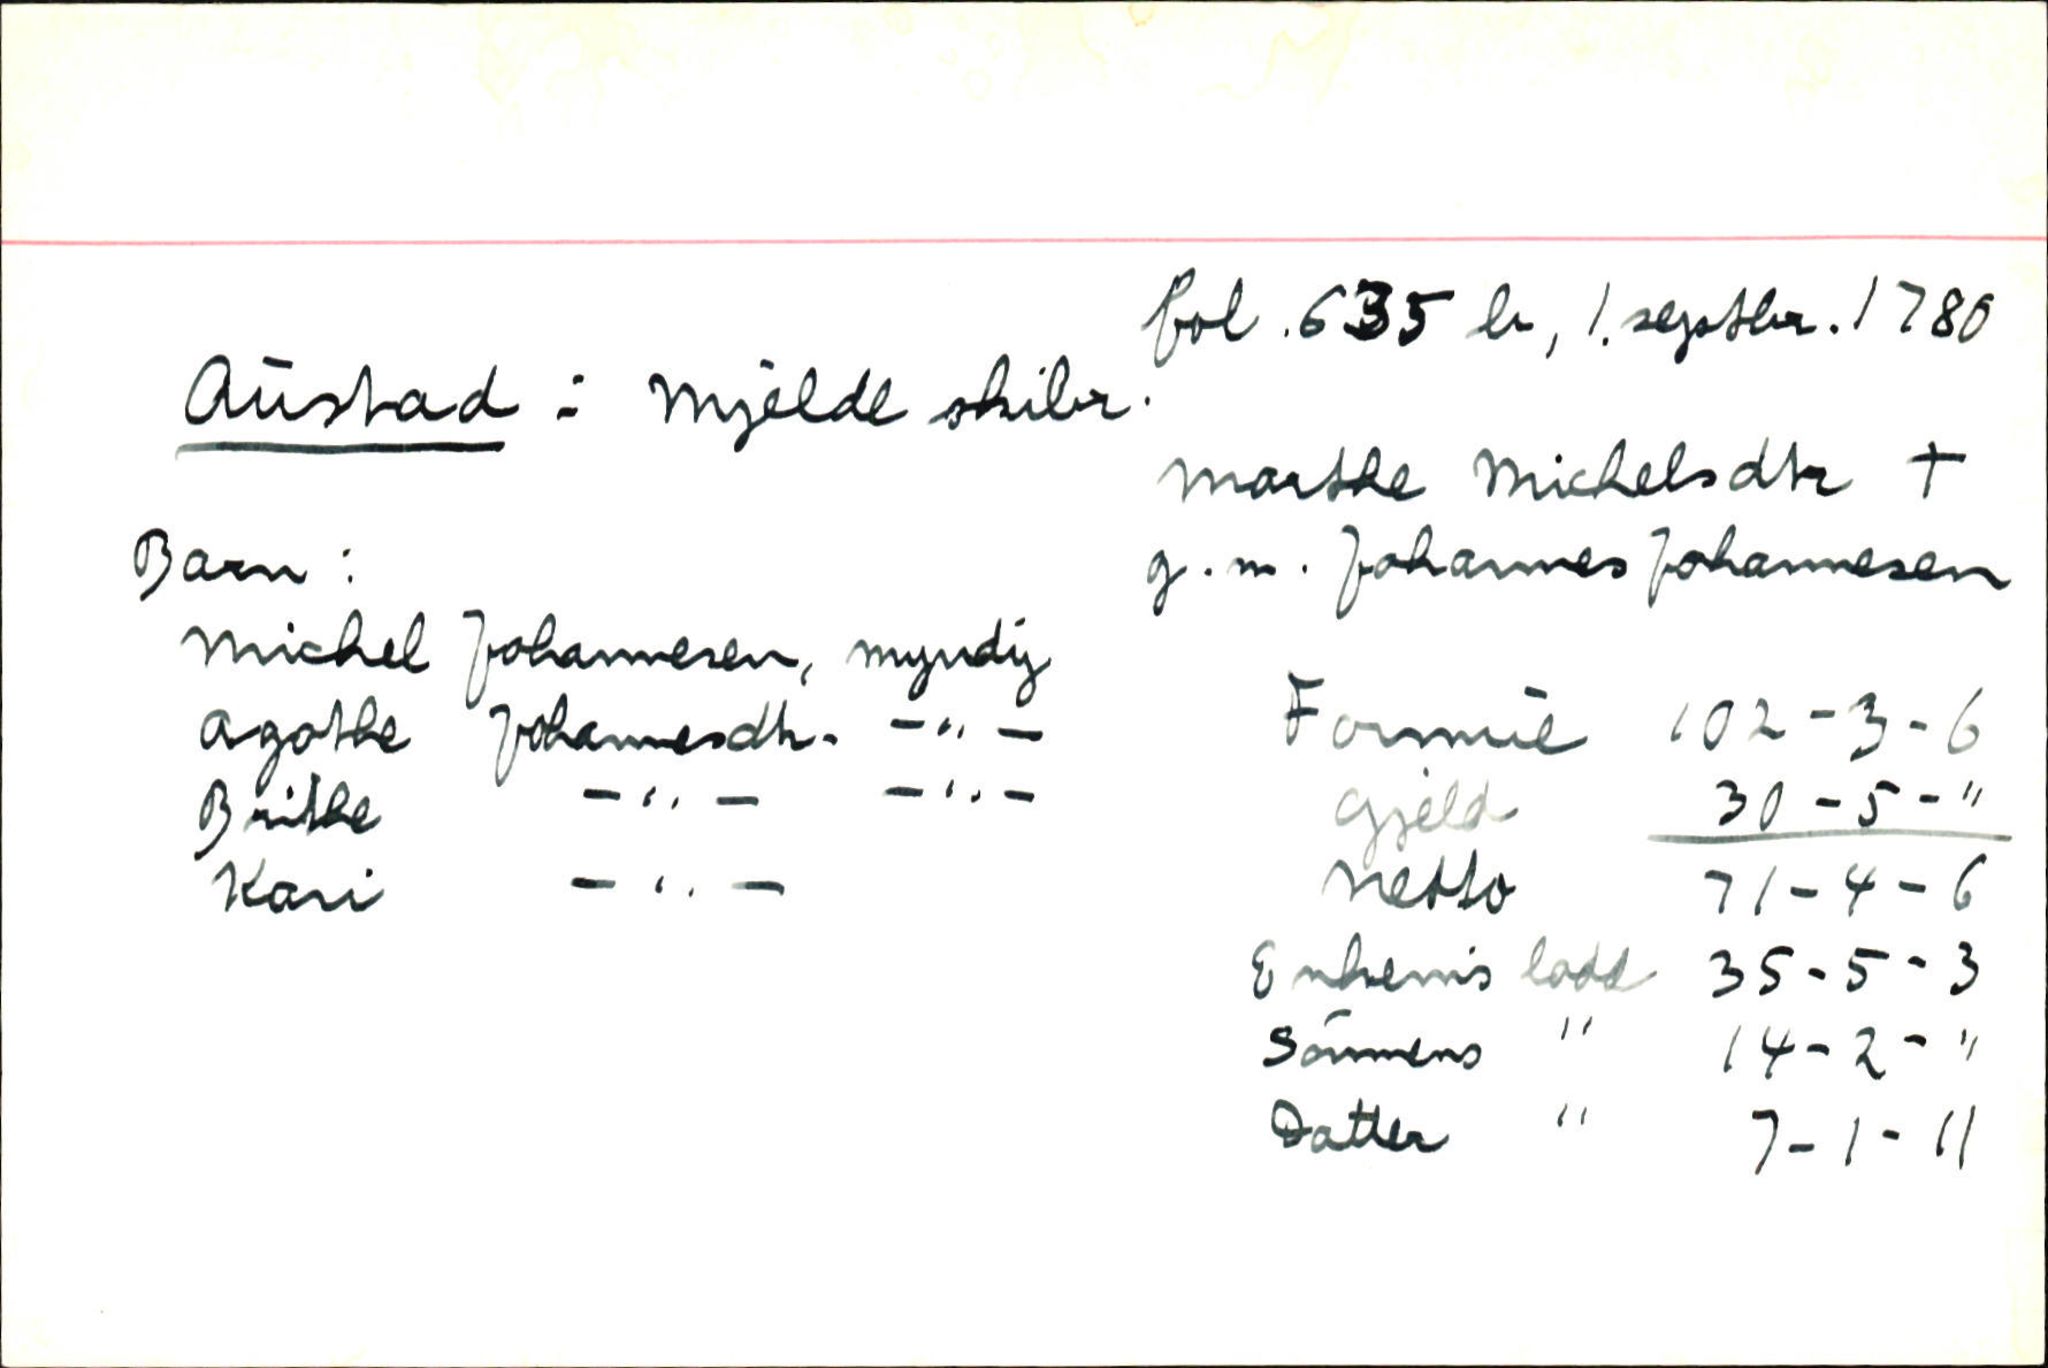 fol. 635 b, 1. septbr. 1780
Austad : Mjelde skibr.
Marthe Michelsdtr †
g.m. Johannes Johannesen
Barn :
Michel Johannesen, myndig
Agathe Johannesdtr. -"-
Brithe -"- -"-
Kari -"-
Formue 102-3-6
Gjeld 30-5-"
Netto 71-4-6
Enkem's lodd 35-5-3
Sönnens " 14-2-"
Datter " 7-1-11